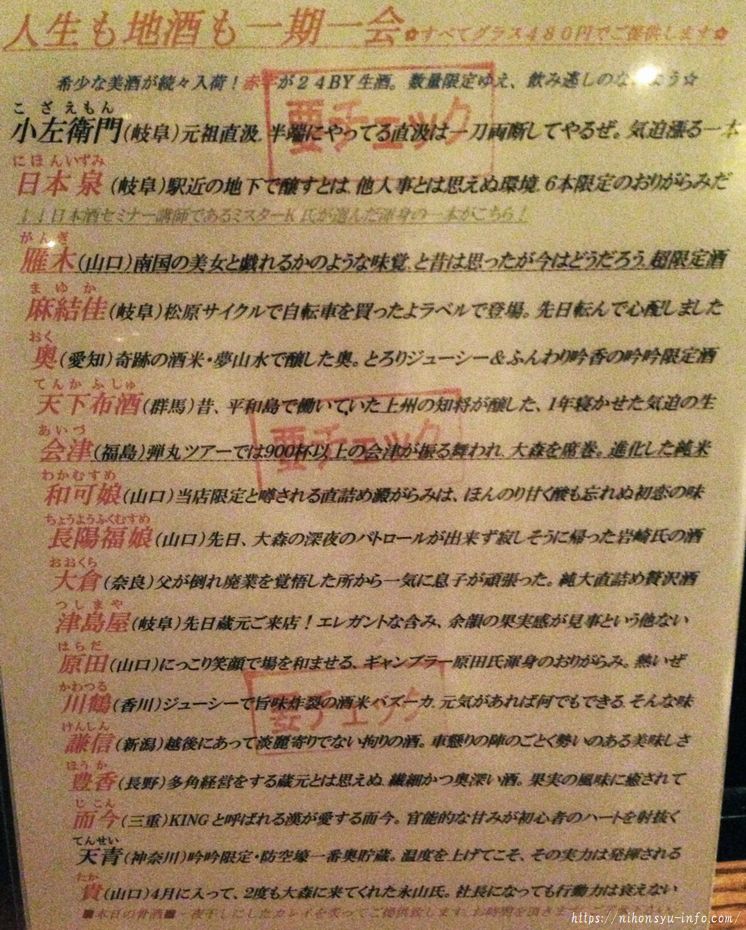 人生も地酒も一期一会✿すべてグラス480円でご提供します✿
希少な美酒が続々入荷！赤字が24BY生酒。数量限定ゆえ、飲み逃しのな よう☆
要チェック
こざえもん
小左衛門(岐阜)元祖直汲。半端にやってる直汲は一刀両断してやるぜ。気迫漲る一本
にほんいずみ
日本泉(岐阜)駅近の地下で醸すとは、他人事とは思えぬ環境。6本限定のおりがらみだ
↓↓日本酒セミナー講師であるミスターK氏が選んだ渾身の一本がこちら！
がんぎ
雁木(山口)南国の美女と戯れるかのような味覚、と昔は思ったが今はどうだろう。超限定酒
まゆか
麻結佳(岐阜)松原サイクルで自転車を買ったよラベルで登場。先日転んで心配しました
おく
奥(愛知)奇跡の酒米・夢山水で醸した奥。とろりジューシー＆ふんわり吟香の吟吟限定酒
てんかふしゅ
天下布酒(群馬)昔、平和島で働いていた上州の知将が醸した、1年寝かせた気迫の生
要チェック
あいづ
会津(福島)弾丸ツアーでは900杯以上の会津が振る舞われ、大森を席巻。進化した純米
わかむすめ
和可娘(山口)当店限定と噂される直詰め澱がらみは、ほんのり甘く酸も忘れぬ初恋の味
ちょうようふくむすめ
長陽福娘(山口)先日、大森の深夜のパトロールが出来ず寂しそうに帰った岩崎氏の酒
おおくら
大倉(奈良)父が倒れ廃業を覚悟した所から一気に息子が頑張った。純大直詰め贅沢酒
つしまや
津島屋(岐阜)先日蔵元ご来店！エレガントな含み、余韻の果実感が見事という他ない
はらだ
原田(山口)にっこり笑顔で場を和ませる、ギャンブラー原田氏渾身のおりがらみ。熱いぜ
要チェック
かわつる
川鶴(香川)ジューシーで旨味炸裂の酒米バズーカ。元気があれば何でもできる、そんな味
けんしん
謙信(新潟)越後にあって淡麗寄りでない拘りの酒。車懸りの陣のごとく勢いのある美味しさ
ほうか
豊香(長野)多角経営をする蔵元とは思えぬ、繊細かつ奥深い酒。果実の風味に癒されて
じこん
而今(三重)KINGと呼ばれる漢が愛する而今。官能的な甘みが初心者のハートを射抜く
てんせい
天青(神奈川)吟吟限定・防空壕一番奥貯蔵。温度を上げてこそ、その実力は発揮される
たか
貴(山口)4月に入って、2度も大森に来てくれた永山氏。社長になっても行動力は衰えない
■本日の骨酒■一夜干しにしたカレイを炙ってご提供致します。お時間を頂きま
https://nihonsyu-info.com/